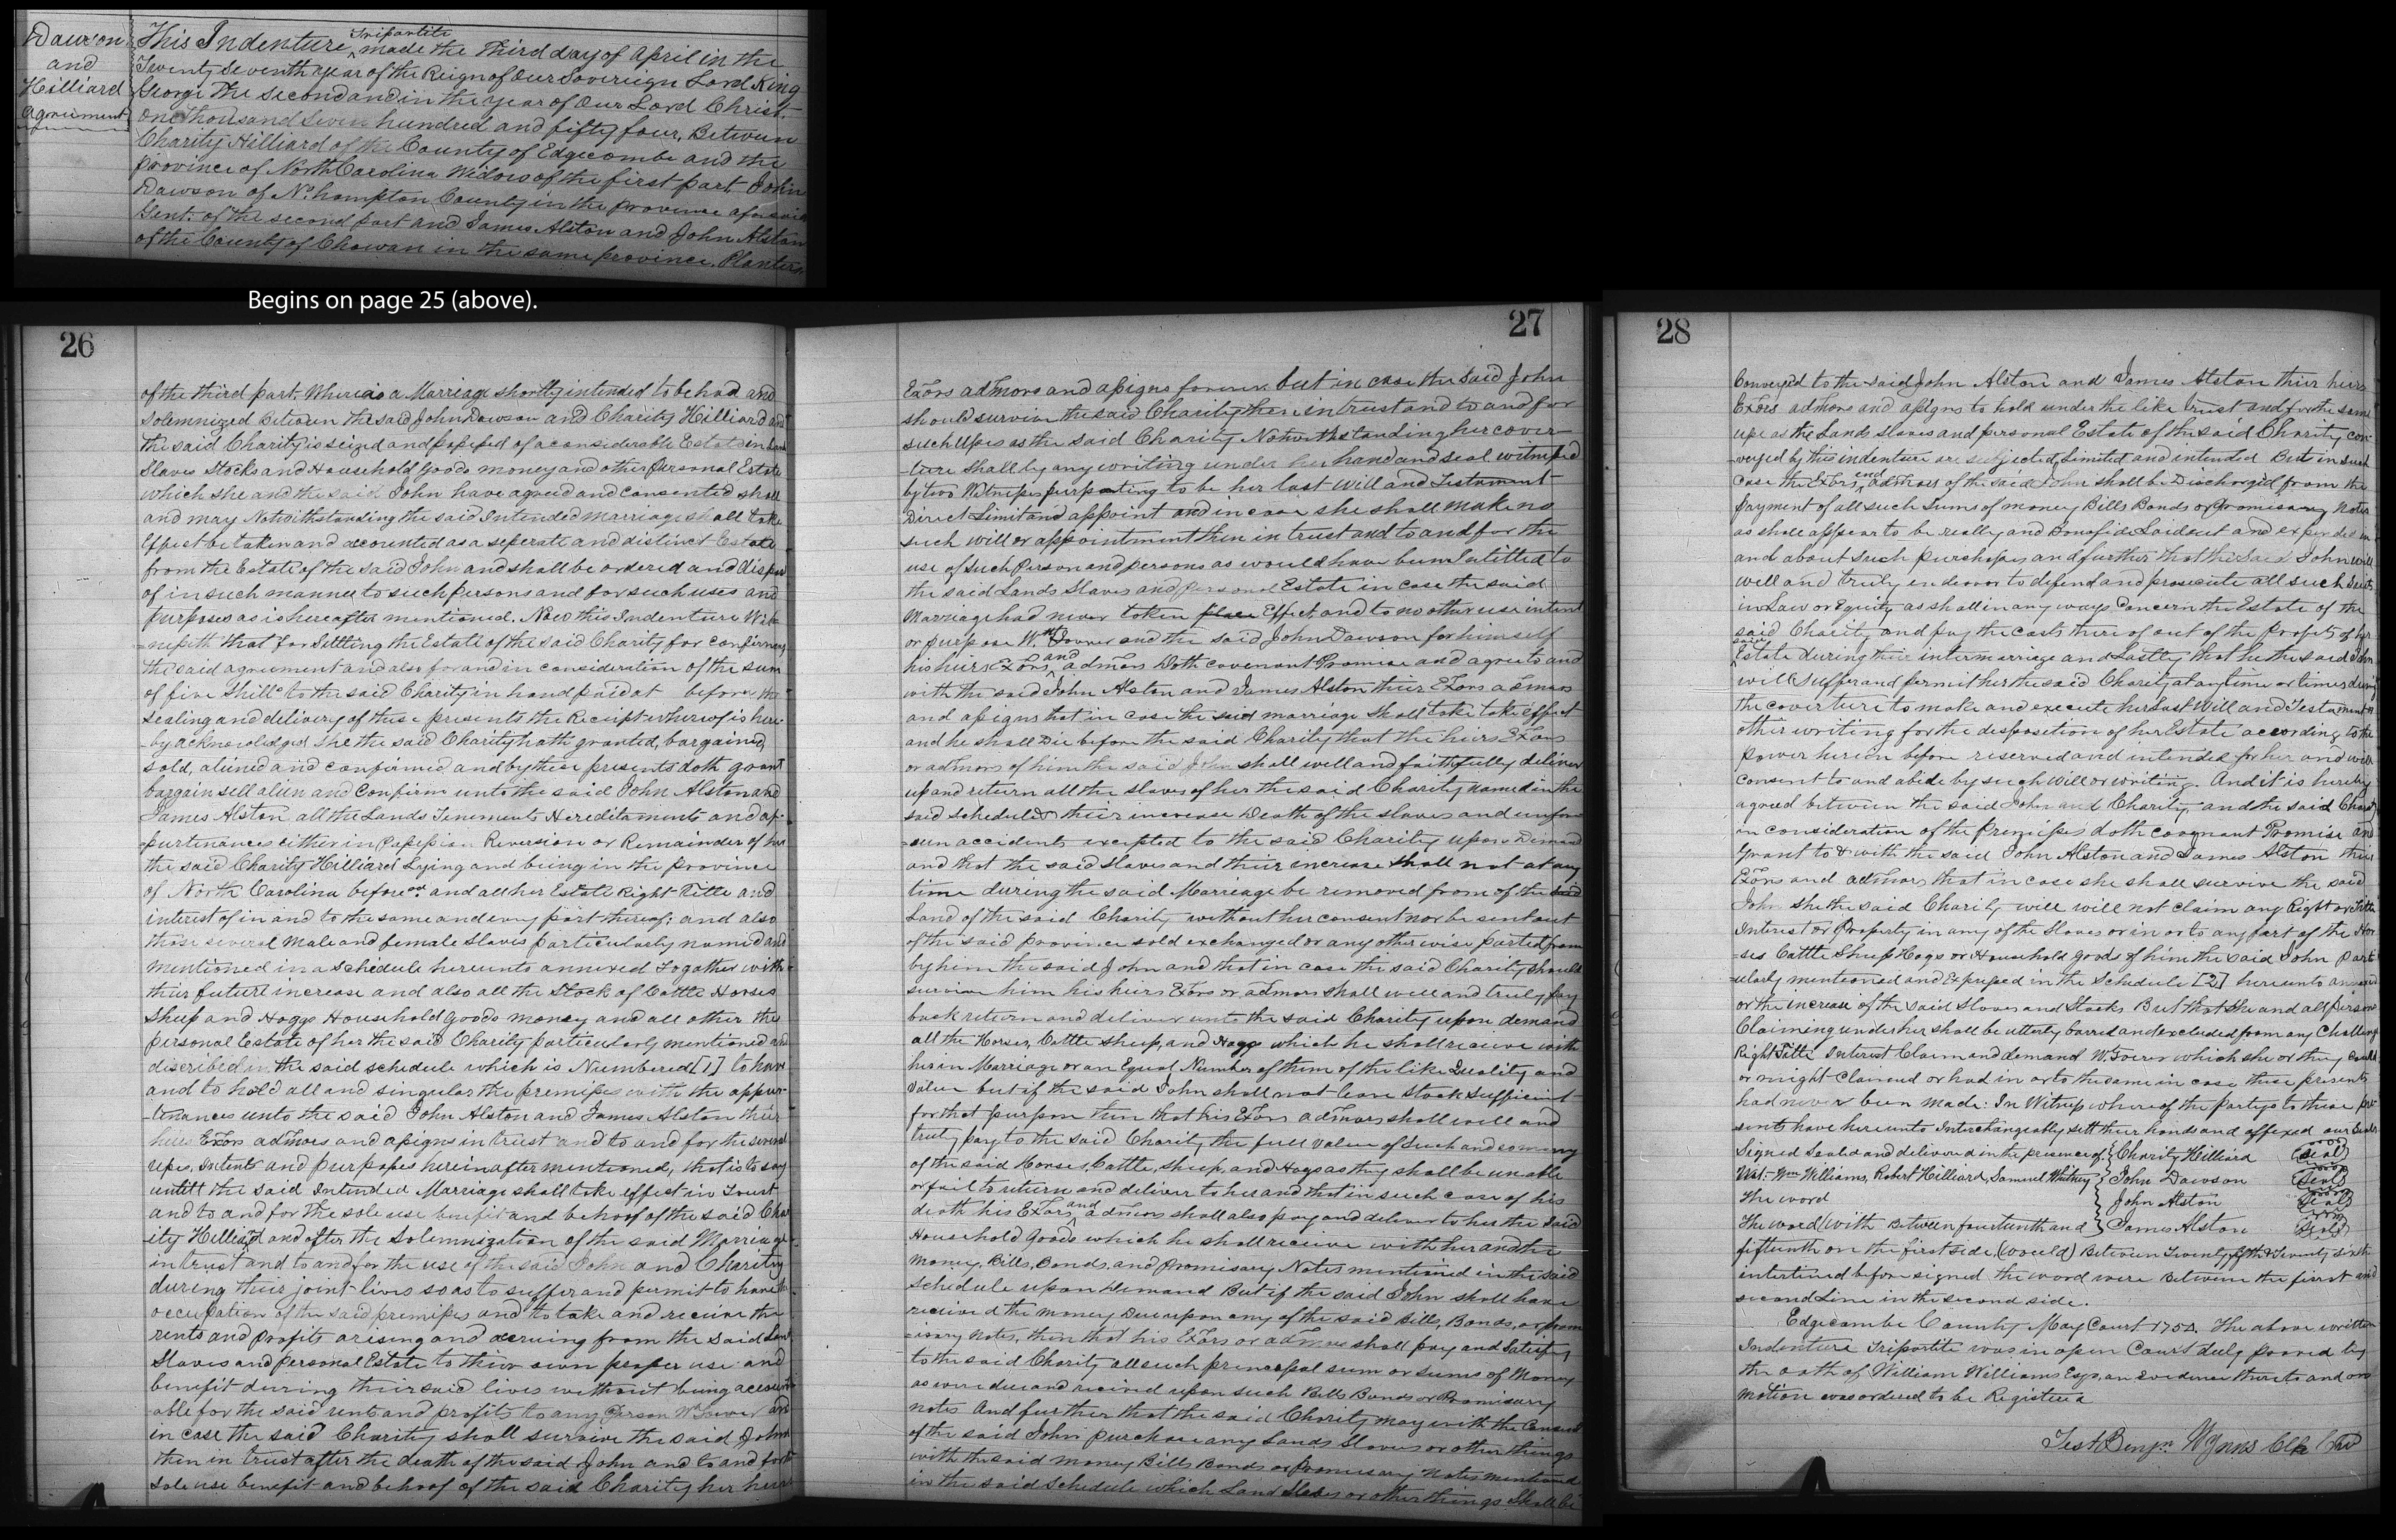 Dawson
and
Hilliard
Agreement
This Indenture Tripartite made the Third day of April in the
Twenty Seventh year of the Reign of Our Sovereign Lord King
George The Second and in the year of Our Lord Christ
One Thousand Seven hundred and fifty four, Between
Charity Hilliard of the County of Edgecombe and the
Province of North Carolina Widow of the first part John
Dawson of No. hampton County in the province aforesaid
Gent: of the second part and James Alston and John Alston
of the County of Chowan in the same province, Planters.
Begins on page 25 (above).
26
of the third part. Whereas a Marriage shortly intended to be had and
Solemnized Between the said John Dawson and Charity Hilliard and
the said Charity is seized and possessed of a considerable Estate in Land
Slaves Stocks and Household goods money and other Personal Estate
which she and the said John have agreed and consented shall
and may Notwithstanding the said Intended marriage shall take
Effect be taken and accounted as a seperate and distinct Estate
from the Estate of the said John and shall be ordered and dispos
of in such manner to such persons and for such uses and
purposes as is hereafter mentioned. Now this Indenture Wit-
-nesseth that for Settling the Estate of the said Charity for confirming
the said agreement and also for and in consideration of the sum
of five Shills to the said Charity in hand paid at before the
sealing and delivery of these presents the Receipt whereof is here-
-by acknowledged she the said Charity hath granted, bargained,
sold, aliened and confirmed and by these presents doth grant
bargain sell alien and Confirm unto the said John Alston and
James Alston all the Lands Tenements Hereditaments and ap-
-purtinances either in Possession Reversion or Remainder of her
the said Charity Hilliard Lying and being in the province
of North Carolina before sd and all her Estate Right Title and
interest of in and to the same and every part thereof; and also
those several Male and female Slaves particularly named and
Mentioned in a Schedule hereunto annexed Togather with
their future increase and also all the Stock of Cattle Horses
Sheep and Hoggs Household goods money and all other the
personal Estate of her the said Charity particularly mentioned and
discribed in the said schedule which is Numbered [1] to have
and to hold all and singular the premises with the appur-
-tenances unto the said John Alston and James Alston their
heirs Exors admors and assigns in trust and to and for the several
uses, Intents and purposes hereinafter mentioned, that is to say
untill the said Intended Marriage shall take effect in Trust
and to and for the sole use benefit and behoof of the said Char
ity Hilliard and after the Solemnization of the said Marriage
in trust and to and for the use of the said John and Charity
during their joint lives so as to suffer and permit to have th
occupation of the said premises and to take and receive the
rents and profits arising and accruing from the said Land
Slaves and personal Estate to their own proper use and
benefit during their said lives without being account-
-able for the said rents and profits to any Person Wtsoever and
in case the said Charity shall survive the said John
then in trust after the death of the said John and to and for the
sole use benefit and behoof of the said Charity her heirs
27
Exors admors and assigns forever but in case the said John
should survive the said Charity then in trust and to and for
such Uses as the said Charity Notwithstanding her cover-
-ture shall by any writing under her hand and seal witnessed
by two Witnesses purporting to be her last will and Testament
Direct Limit and appoint and in case she shall make no
such will or appointment then in trust and to and for the
use of such Person and persons as would have been Entitled to
the said Lands Slaves and personal Estate in case the said
Marriage had never taken place Effect, and to no other use intent
or purpose Wtsoever and the said John Dawson for himself
his heirs Exors and admors Doth covenant Promise and agree to and
with the said John Alston and James Alston their Exors admors
and assigns that in case the said marriage shall take take Effect
and he shall Die before the said Charity that the heirs Exors
or admors of him the said John shall well and faithfully deliver
up and return all the slaves of her the said Charity named in the
said schedule & their increase Death of the slaves and unfore-
-seen accidents excepted to the said Charity upon Demand
and that the said Slaves and their increase shall not at any
time during the said Marriage be removed from of the said
Land of the said Charity without her consent nor be sent out
of the said province sold exchanged or any other wise parted from
by him the said John and that in case the said Charity should
survive him his heirs Exors or admors shall well and truly pay
back return and deliver unto the said Charity upon demand
all the Horses, Cattle sheep, and Hogs which he shall receive with
her in Marriage or an Equal Number of them of the like Quality and
value but if the said John shall not leave Stock sufficient
for that purpose then that his Exors admors shall well and
truly pay to the said Charity the full value of such and so many
of the said Horses, Cattle, Sheep, and Hogs as they shall be unable
or fail to return and deliver to her and that in such case of his
death his Exors and admors shall also pay and deliver to her the said
Household Goods which he shall receive with her and the
Money, Bills, Bonds, and Promisary Notes mentioned in the said
schedule upon Demand But if the said John shall have
received the money Due upon any of the said Bills, Bonds, or prom-
-isary Notes, then that his Exors or admors shall pay and Satisfy
to the said Charity all such principal sum or sums of Money
as were due and recived upon such Bills Bonds or Promisary
notes And further that the said Charity may with the Consent
of the said John purchase any Lands Slaves or other things
with the said money Bills Bonds or Promisary Notes mentioned
in the said Schedule which Land Slaves or other things Shall be
28
Conveyed to the said John Alston and James Alston their heirs
Exors admors and assigns to hold under the like trust and for the same
use as the Lands Slaves and personal Estate of the said Charity con-
-veyed by this indenture are subjected, Limited and intended But in such
case the Exors and admors of the said John shall be Discharged from the
payment of all such Sums of money Bills Bonds or Promisary Notes
as shall appear to be really and Bonafide Laid out and expended in
and about such purchases and further that the said John will
well and truly endeavor to defend and prosecute all such Suits
in Law or Equity as shall in any ways Concern the Estate of the
said Charity and pay the costs there of out of the Profits of her
said Estate during their intermarriage and Lastly that he the said John
will Suffer and permit her the said Charity at any time or times during
the coverture to make and execute her Last Will and Testament or
other writing for the disposition of her Estate according to the
power herein before reserved and intended for her and will
consent to and abide by such Will or writing. And it is hereby
agreed between the said John and Charity, and the said Charity
in consideration of the Premises doth covenant Promise and
Grant to & with the said John Alston and James Alston their
Exors and admors that in case she shall survive the said
John she the said Charity will will not claim any Right or Title
Interest or Property in any of the Slaves or in or to any part of the Hor-
-ses Cattle Sheep Hogs or Household goods of him the said John Partic
ularly mentioned and Expressed in the Schedule [2] hereunto annexed
or the increase of the said Slaves and Stocks But that She and all persons
Claiming under her shall be utterly barred and excluded from any Challenge
Right Title Interest Claim and demand Wtsoever which she or they could
or might claimed or had in or to the same in case these presents
had never been made: In Witness whereof the partys to these pre
sents have hereunto Interchangeably sett their hands and affixed our Seals
Signed Sealed and delivered in the presence of Charity Hilliard (Seal)
Test: Wm Williams, Robert Hilliard, Samuel Whitney John Dawson (Seal)
The word John Alston (Seal)
The word (with Between fourteenth and James Alston (Seal)
fifteenth on the first side, (would) Between Twenty fifth & Twenty sixth
interlined before signed the word were Between the first and
second Line in the second side.
Edgecombe County May Court 1754. The above written
Indenture Tripartite was in open Court duly proved by
the oath of William Williams Esqr, an Evidence thereto and on
motion was ordered to be Registered
Test Benjn Wynns Clk Co